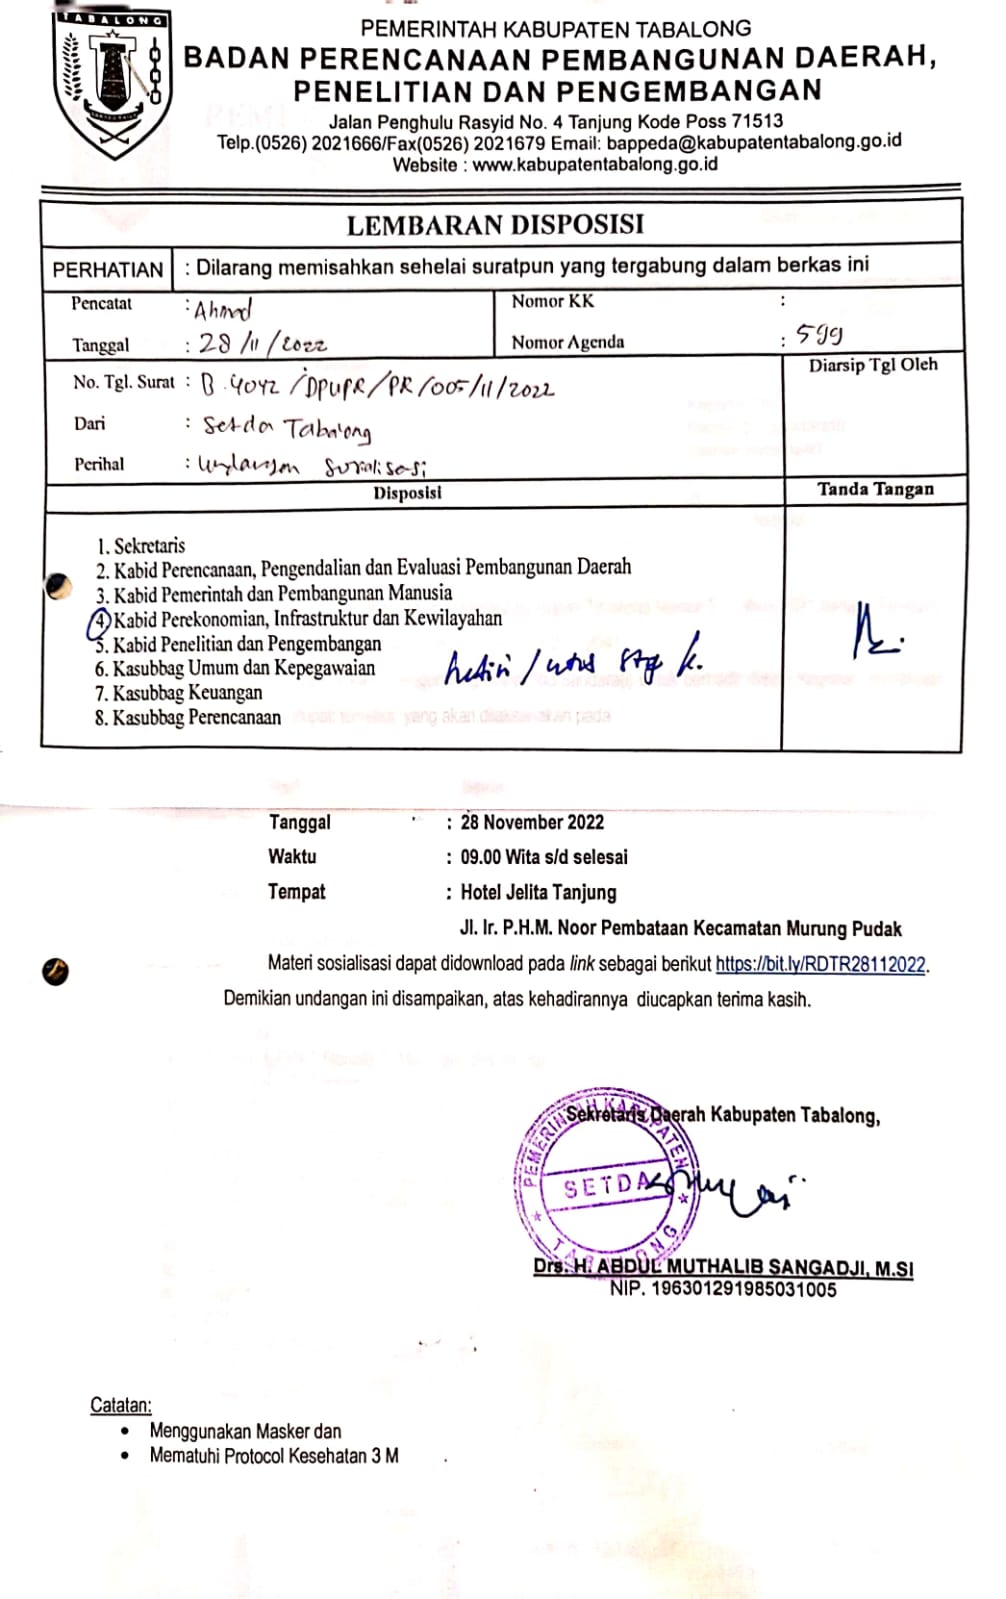 TABALONG
PEMERINTAH KABUPATEN TABALONG
BADAN PERENCANAAN PEMBANGUNAN DAERAH,
PENELITIAN DAN PENGEMBANGAN
Jalan Penghulu Rasyid No. 4 Tanjung Kode Poss 71513
Telp.(0526) 2021666/Fax(0526) 2021679 Email: bappeda@kabupatentabalong.go.id
Website : www.kabupatentabalong.go.id
LEMBARAN DISPOSISI
PERHATIAN : Dilarang memisahkan sehelai suratpun yang tergabung dalam berkas ini
Pencatat : Ahmad Nomor KK :
Tanggal : 28/11/2022 Nomor Agenda : 599
No. Tgl. Surat : B.4042/DPUPR/PR/005/11/2022 Diarsip Tgl Oleh
Dari : Setda Tabalong
Perihal : Undangan Sosialisasi
Disposisi Tanda Tangan
1. Sekretaris
2. Kabid Perencanaan, Pengendalian dan Evaluasi Pembangunan Daerah
3. Kabid Pemerintah dan Pembangunan Manusia
4. Kabid Perekonomian, Infrastruktur dan Kewilayahan
5. Kabid Penelitian dan Pengembangan
6. Kasubbag Umum dan Kepegawaian
7. Kasubbag Keuangan
8. Kasubbag Perencanaan
yang akan dilaksanakan pada
Tanggal : 28 November 2022
Waktu : 09.00 Wita s/d selesai
Tempat : Hotel Jelita Tanjung
Jl. Ir. P.H.M. Noor Pembataan Kecamatan Murung Pudak
Materi sosialisasi dapat didownload pada link sebagai berikut https://bit.ly/RDTR28112022.
Demikian undangan ini disampaikan, atas kehadirannya diucapkan terima kasih.
Sekretaris Daerah Kabupaten Tabalong,
PEMERINTAH KABUPATEN
SETDA
TABALONG
Drs. H. ABDUL MUTHALIB SANGADJI, M.SI
NIP. 196301291985031005
Catatan:
• Menggunakan Masker dan
• Mematuhi Protocol Kesehatan 3 M